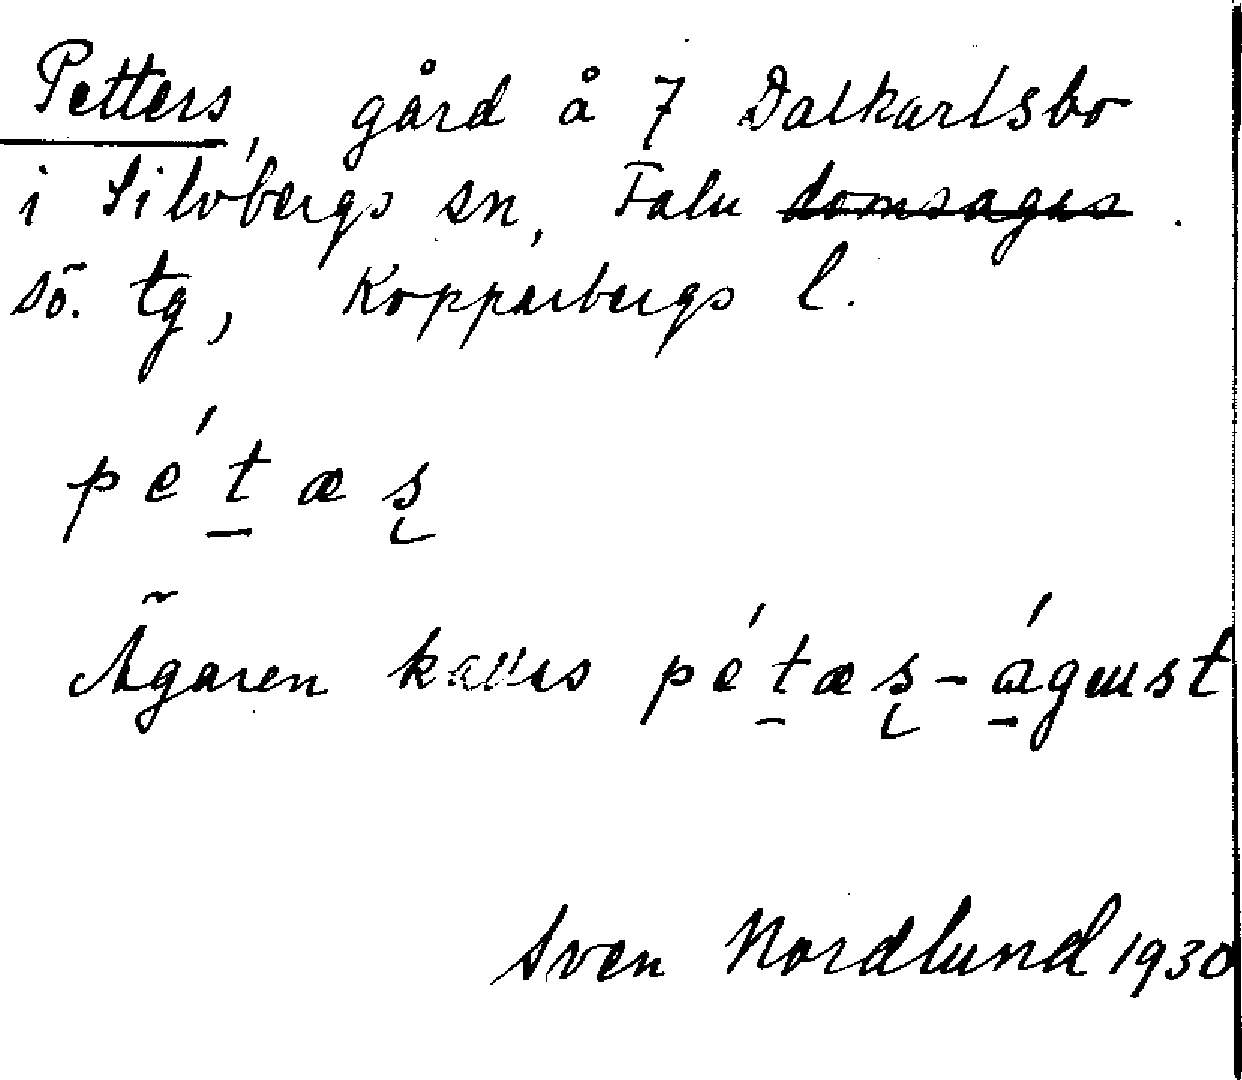 Petters, gård å 7 Dalkarlsbo
i Silvbergs sn, Falu domsagas
sö. tg, Kopparbergs l.
pétæş
Ägaren kallas pétæş-águst
Sven Nordlund 1930